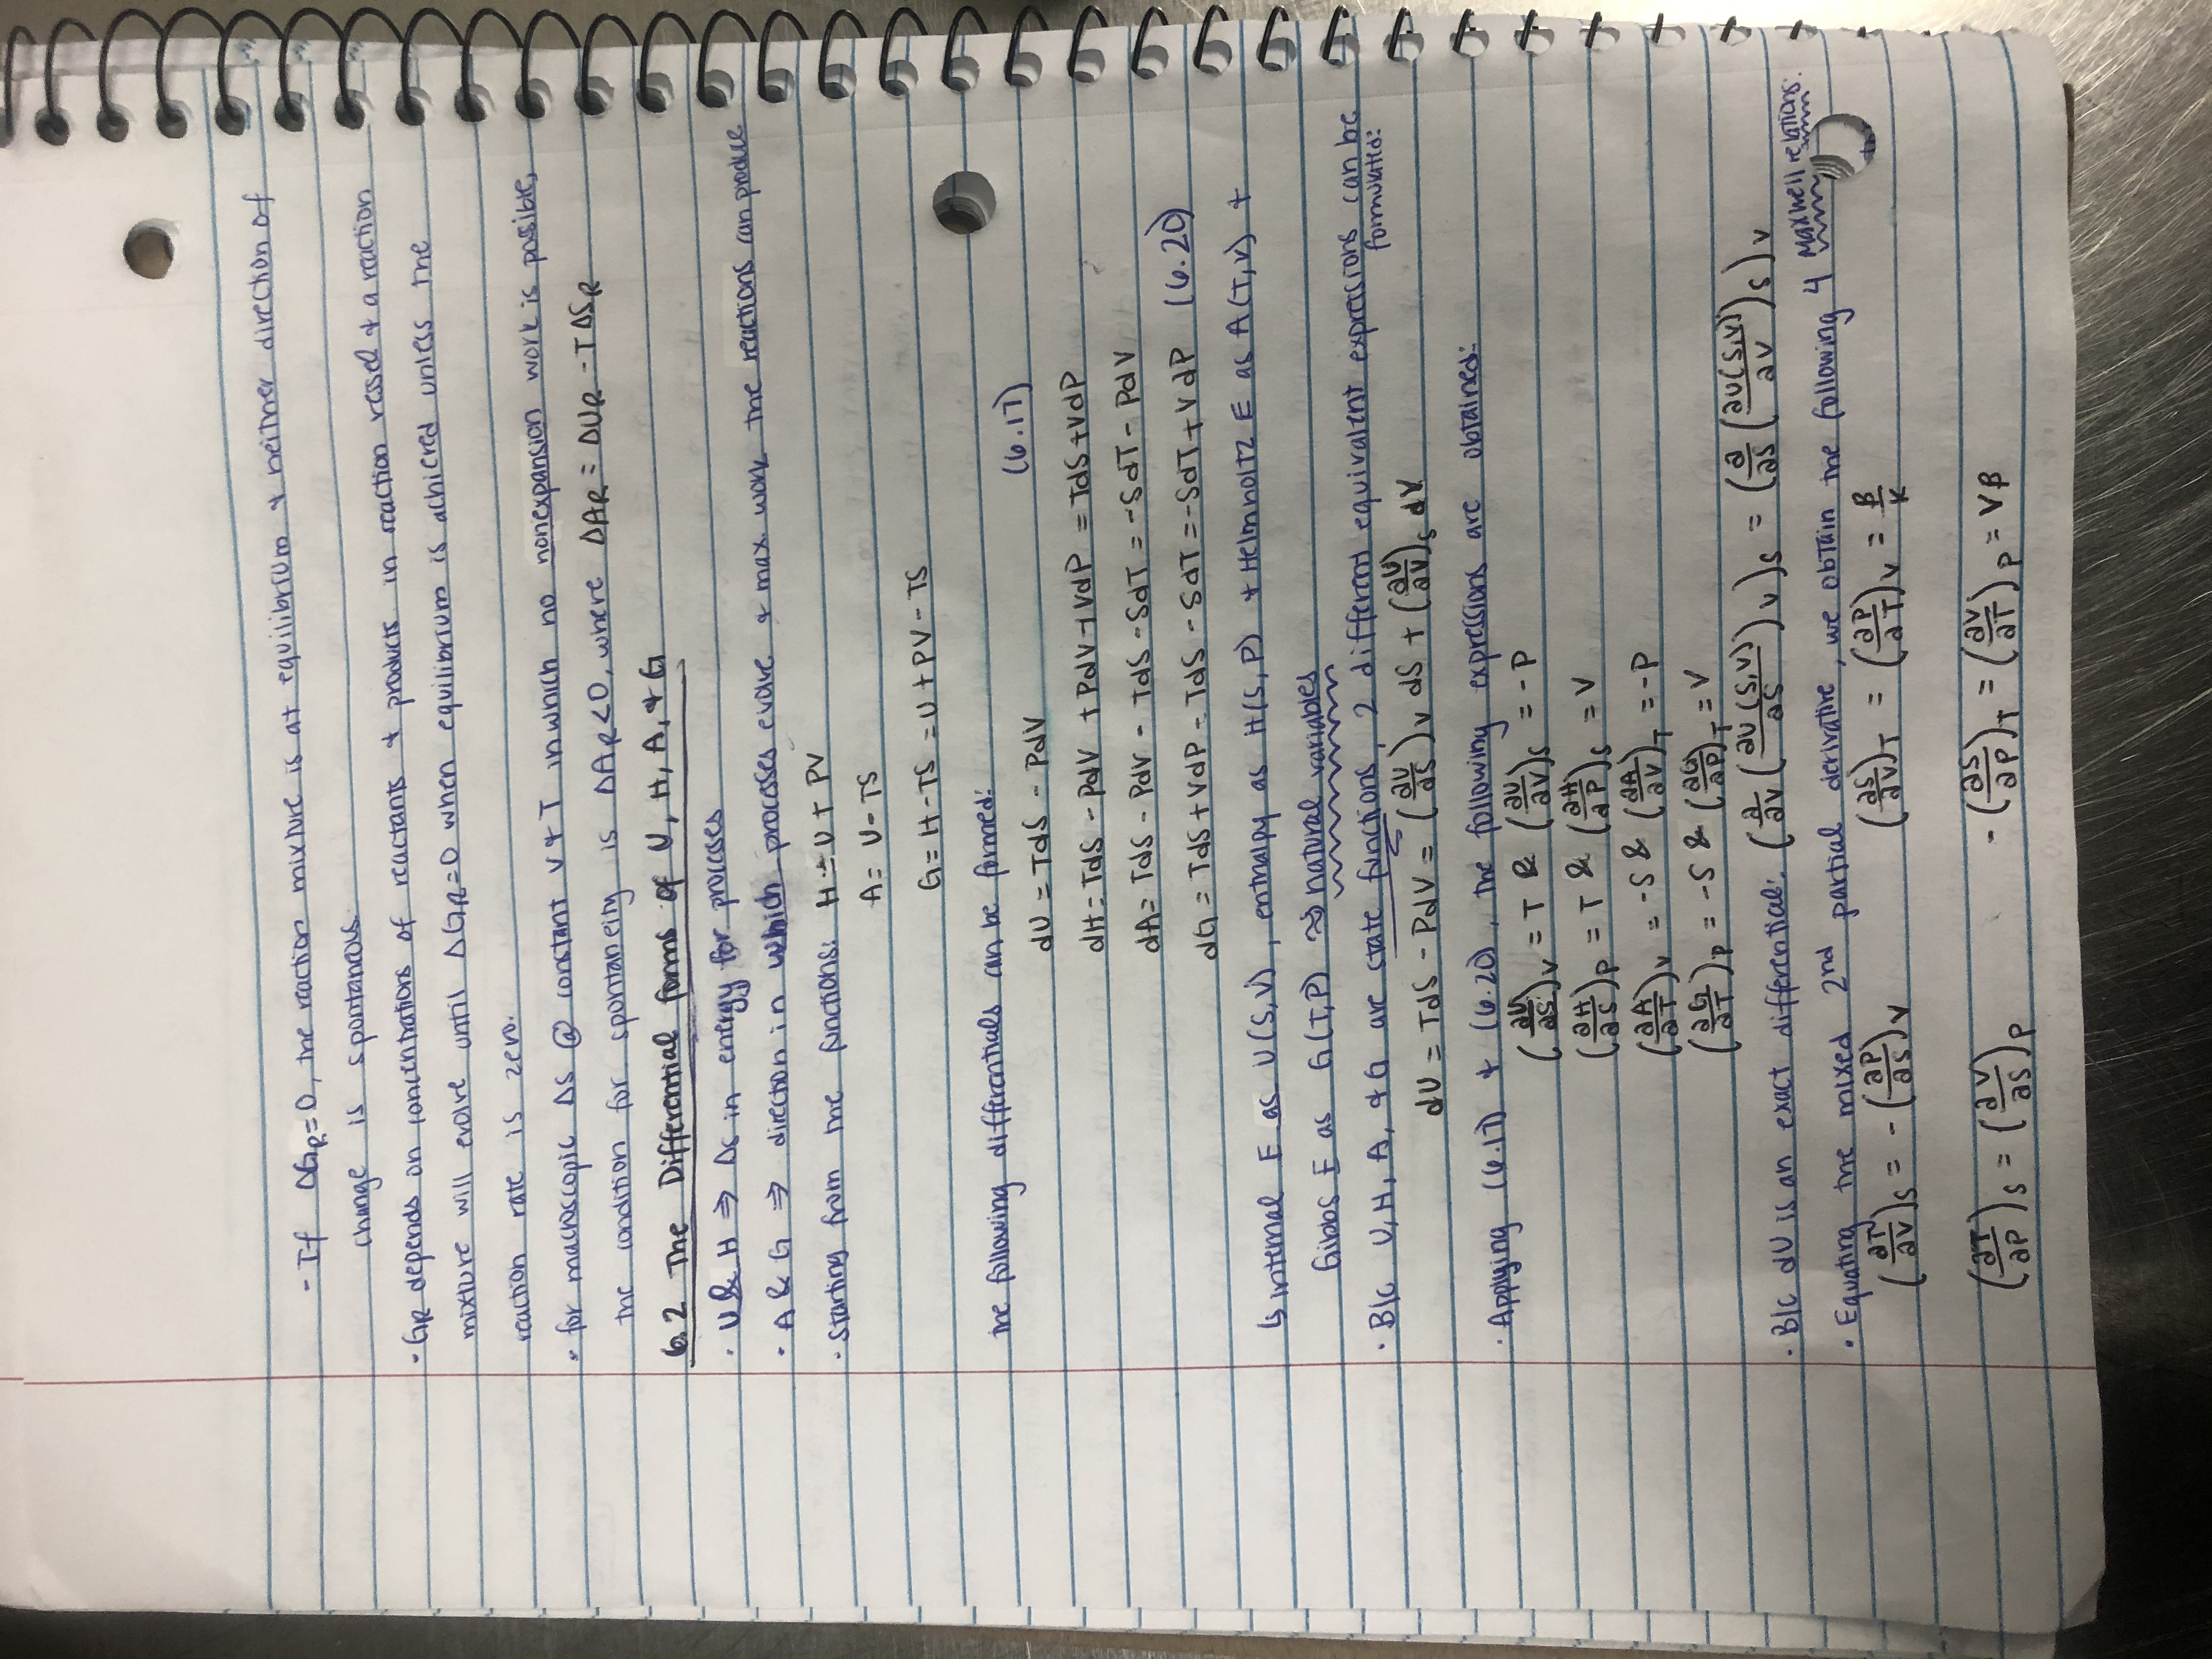 - If ΔG_R=0, the reaction mixture is at equilibrium & neither direction of
change is spontaneous.
· G_R depends on concentrations of reactants & products in reaction vessel & a reaction
mixture will evolve until ΔG_R=0 when equilibrium is achieved unless the
reaction rate is zero.
· for macroscopic Δs @ constant V & T in which no nonexpansion work is possible,
the condition for spontaneity is ΔA_R<0, where ΔA_R = ΔU_R - TΔS_R
6.2 The Differential forms of U, H, A, & G
· U & H ⇒ Δs in energy for processes
· A & G ⇒ direction in which processes evolve & max. work the reactions can produce
· Starting from the functions: H = U + PV
A = U - TS
G = H - TS = U + PV - TS
the following differentials can be formed:
dU = TdS - PdV (6.17)
dH = TdS - PdV + PdV + VdP = TdS + VdP
dA = TdS - PdV - TdS - SdT = -SdT - PdV
dG = TdS + VdP - TdS - SdT = -SdT + VdP (6.20)
↳ internal E as U(S,V), enthalpy as H(S,P) & Helmholtz E as A(T,V) &
Gibbs E as G(T,P) ⇒ natural variables
· B/c U, H, A, & G are state functions, 2 different equivalent expressions can be
formulated:
dU = TdS - PdV = (∂U/∂S)_V dS + (∂U/∂V)_S dV
· Applying (6.17) & (6.20), the following expressions are obtained:
(∂U/∂S)_V = T & (∂U/∂V)_S = -P
(∂H/∂S)_P = T & (∂H/∂P)_S = V
(∂A/∂T)_V = -S & (∂A/∂V)_T = -P
(∂G/∂T)_P = -S & (∂G/∂P)_T = V
· B/c dU is an exact differential: (∂/∂V (∂U(S,V)/∂S)_V)_S = (∂/∂S (∂U(S,V)/∂V)_S)_V
· Equating the mixed 2nd partial derivative, we obtain the following 4 Maxwell relations:
(∂T/∂V)_S = -(∂P/∂S)_V (∂S/∂V)_T = (∂P/∂T)_V = β/κ
(∂T/∂P)_S = (∂V/∂S)_P -(∂S/∂P)_T = (∂V/∂T)_P = Vβ